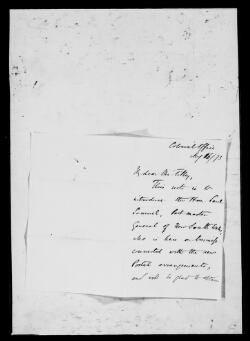 Colonial Office
My dear Mr Tilley,
This note is to
introduce the Hon. Saul
Samuel, Post master
General of New South Wales,
who is here on business
connected with the new
Postal arrangements,
and will be glad to obtain